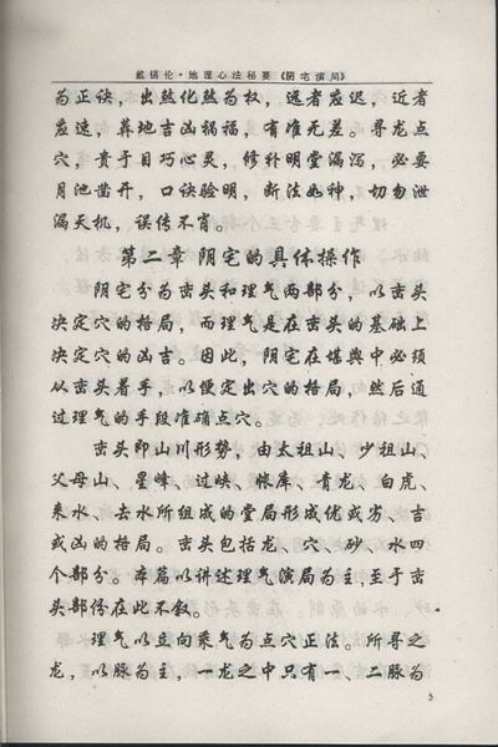 戴锡伦·地理心法秘要《阴宅演局》
为正诀，出煞化煞为权，远者应迟，近者
应速，葬地吉凶祸福，有准无差。寻龙点
穴，贵于目巧心灵，修补明堂漏泻，必要
月池凿开，口诀验明，断法如神，切勿泄
漏天机，误传不肖。
第二章 阴宅的具体操作
阴宅分为峦头和理气两部分，以峦头
决定穴的格局，而理气是在峦头的基础上
决定穴的凶吉。因此，阴宅在堪舆中必须
从峦头着手，以便定出穴的格局，然后通
过理气的手段准确点穴。
峦头即山川形势，由太祖山、少祖山、
父母山、星峰、过峡、帐库、青龙、白虎、
来水、去水所组成的堂局形成优或劣、吉
或凶的格局。峦头包括龙、穴、砂、水四
个部分。本篇以讲述理气演局为主,至于峦
头部份在此不叙。
理气以立向乘气为点穴正法。所寻之
龙，以脉为主，一龙之中只有一、二脉为
5